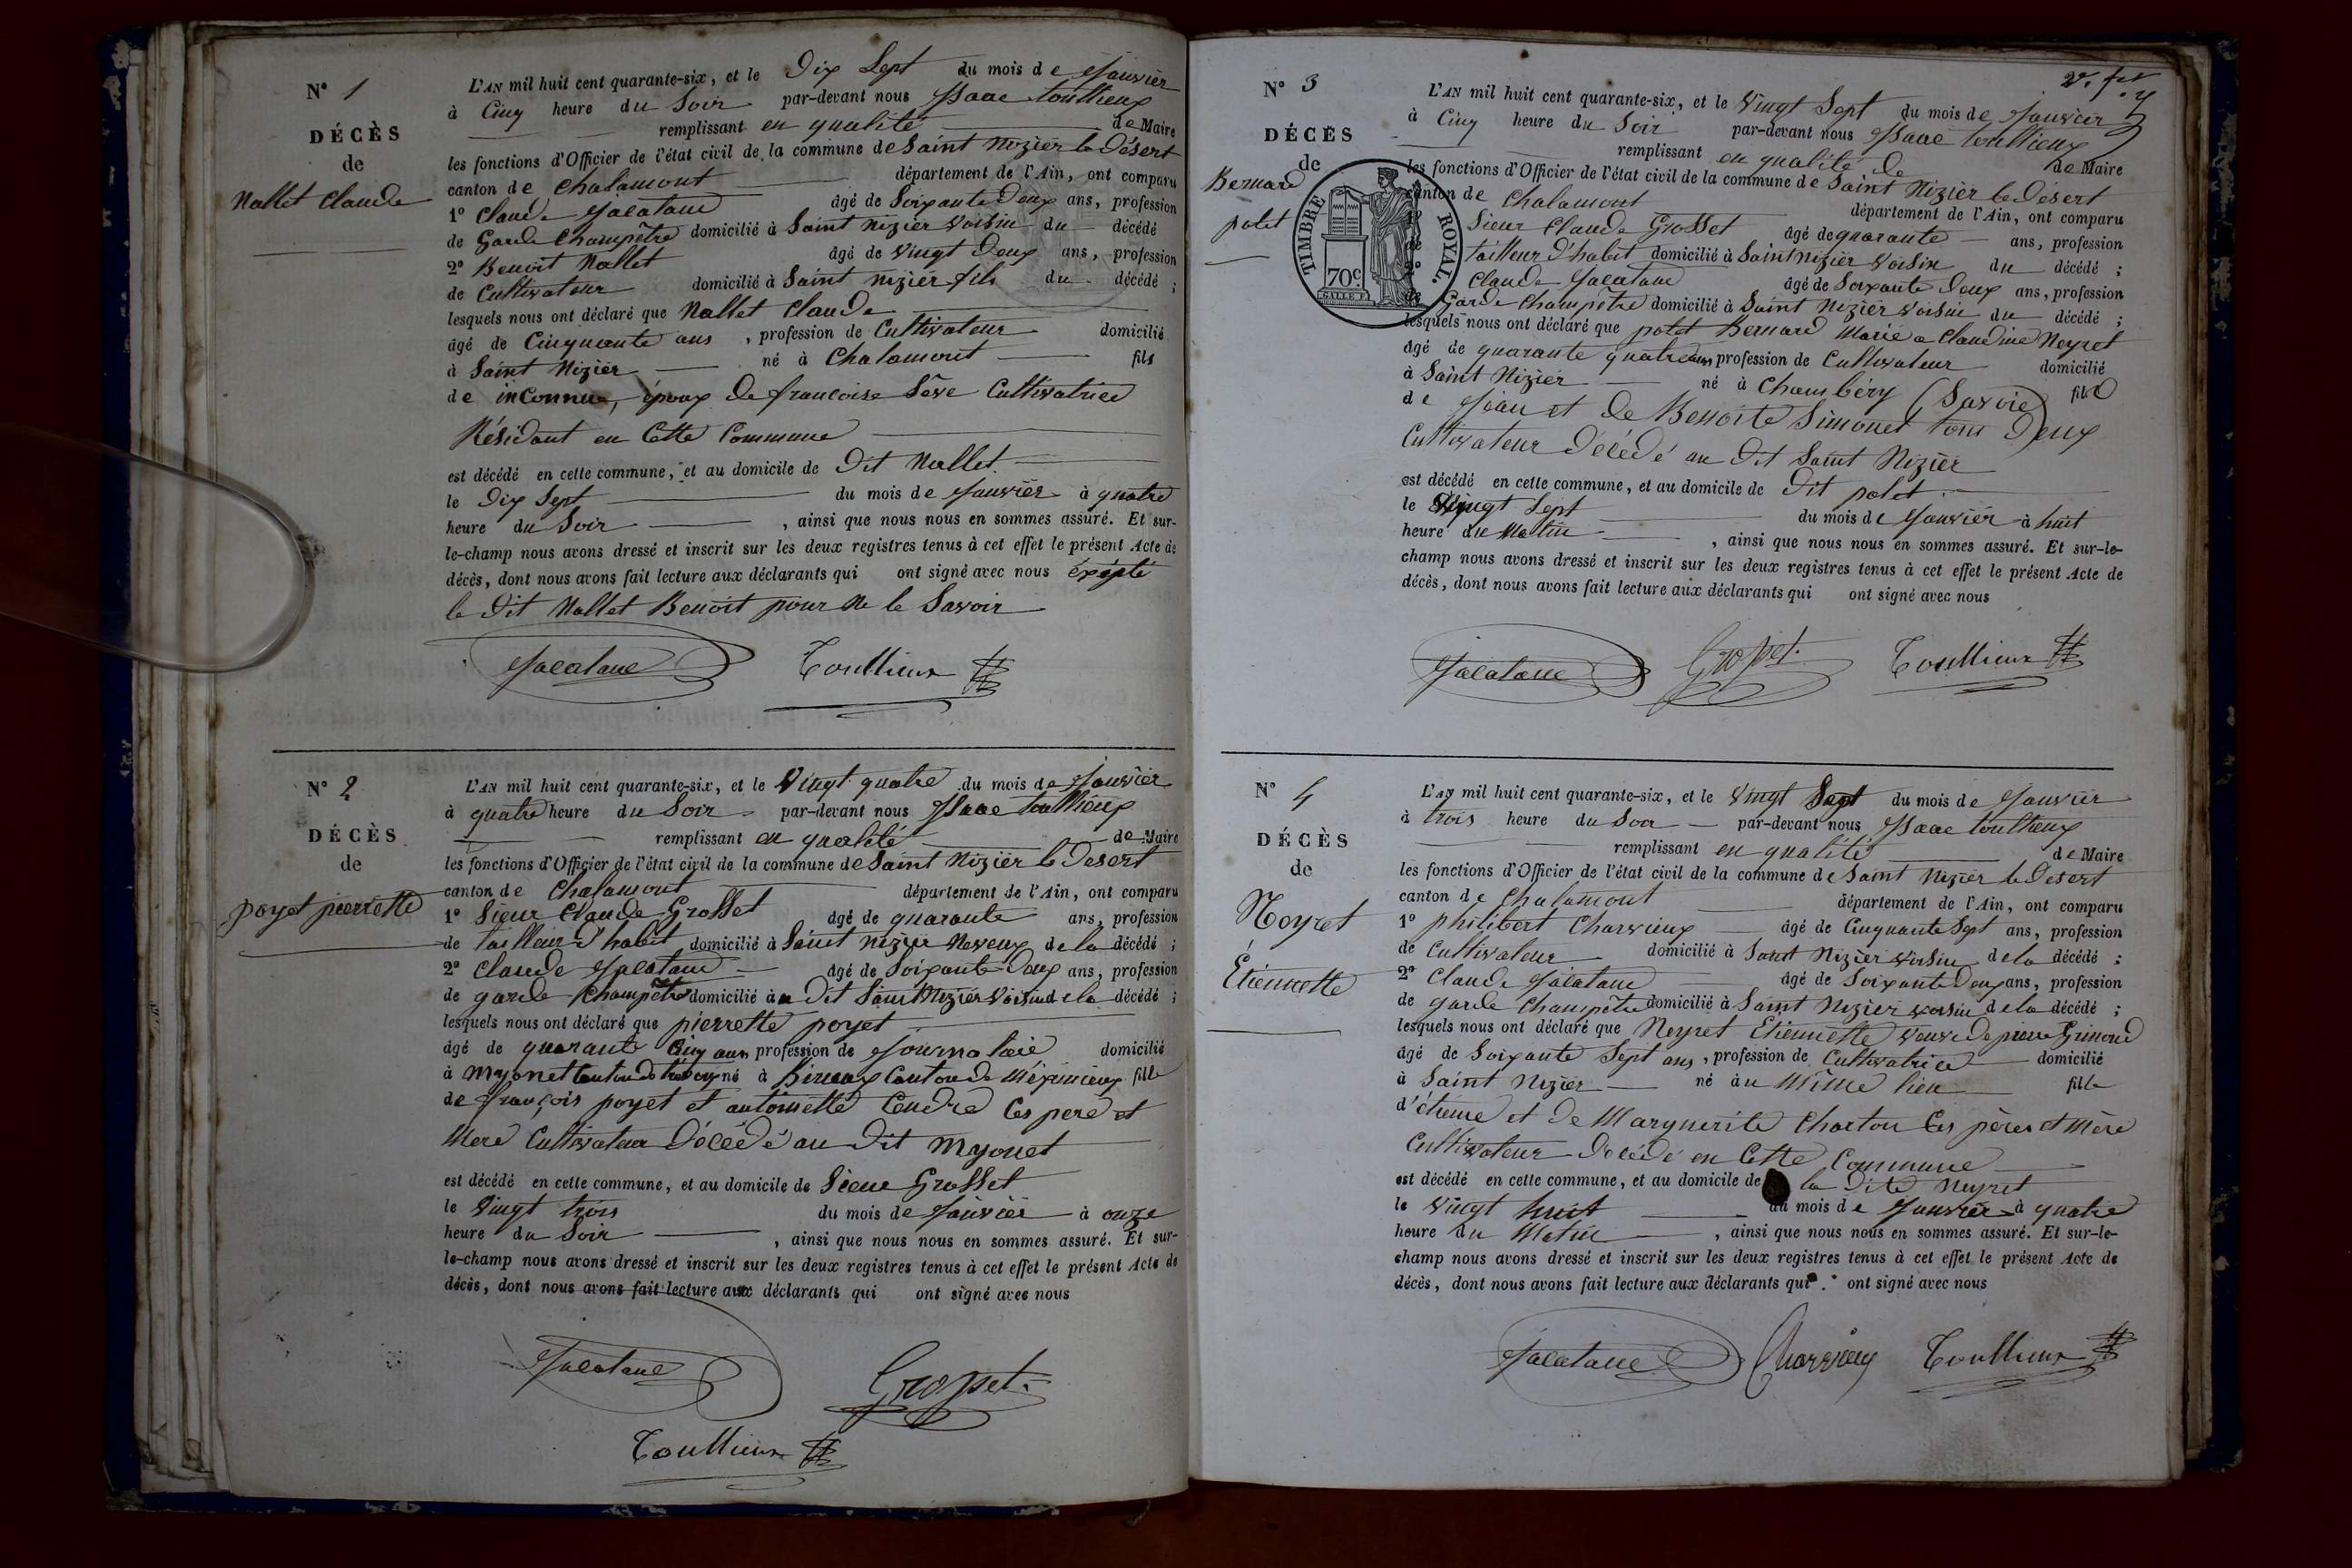 N° 1
DÉCÈS
de
Nallet Claude
L'AN mil huit cent quarante-six, et le Dix Sept du mois de Janvier
à Cinq heure du Soir par-devant nous Isaac toullieux
remplissant en qualité de Maire
les fonctions d'Officier de l'état civil de la commune de Saint Nizier le Désert
canton de Chalamont département de l'Ain, ont comparu
1° Claude Jacatane âgé de Soixante Deux ans, profession
de Garde Champêtre domicilié à Saint Nizier Voisin du décédé
2° Benoit Nallet âgé de Vingt Deux ans, profession
de Cultivateur domicilié à Saint Nizier fils du décédé ;
lesquels nous ont déclaré que Nallet Claude
âgé de Cinquante ans , profession de Cultivateur domicilié
à Saint Nizier né à Chalamont fils
de inconnue, époux de francoise Sève Cultivatrice
Résidant en Cette Commune
est décédé en cette commune, et au domicile de Dit Nallet
le Dix Sept du mois de Janvier à quatre
heure du Soir , ainsi que nous nous en sommes assuré. Et sur-
le-champ nous avons dressé et inscrit sur les deux registres tenus à cet effet le présent Acte de
décès, dont nous avons fait lecture aux déclarants qui ont signé avec nous éxépté
le Dit Nallet Benoit pour Ne le Savoir
Jacatane Toullieux
N° 2
DÉCÈS
de
poyet pierrette
L'AN mil huit cent quarante-six, et le Vingt quatre du mois de Janvier
à quatre heure du Soir par-devant nous Isaac toullieux
remplissant en qualité de Maire
les fonctions d'Officier de l'état civil de la commune de Saint Nizier le Desert
canton de Chalamont département de l'Ain, ont comparu
1° Sieur Claude Grosset âgé de quarante ans, profession
de tailleur D'habit domicilié à Saint Nizier Neveux de la décédé ;
2° Claude Jacatane âgé de Soixante Deux ans, profession
de garde Champêtre domicilié à au Dit Saint Nizier Voisin de la décédé ;
lesquels nous ont déclaré que pierrette poyet
âgé de quarante Cinq ans profession de Journalaie domicilié
à Myonet Canton de né à Birieux Canton de Méximieux fille
de françois poyet et antoinette Cendre Ces pere et
Mere Cultivateur Décédé au Dit Myonet
est décédé en cette commune, et au domicile de Sieur Grosset
le Vingt trois du mois de Janvier à onze
heure du Soir , ainsi que nous nous en sommes assuré. Et sur-
le-champ nous avons dressé et inscrit sur les deux registres tenus à cet effet le présent Acte de
décès, dont nous avons fait lecture aux déclarants qui ont signé avec nous
Jacatane Grosset
Toullieux
N° 3
DÉCÈS
de
Bernard
polet
TIMBRE ROYAL.
70c.
L'AN mil huit cent quarante-six, et le Vingt Sept du mois de Janvier
à Cinq heure du Soir par-devant nous Isaac toullieux
remplissant en qualité de de Maire
les fonctions d'Officier de l'état civil de la commune de Saint Nizier le Désert
canton de Chalamont département de l'Ain, ont comparu
1° Sieur Claude Grosset âgé de quarante ans, profession
de tailleur D'habit domicilié à Saint Nizier Voisin du décédé ;
2° Claude Jacatane âgé de Soixante Deux ans, profession
de Garde Champêtre domicilié à Saint Nizier Voisin du décédé ;
lesquels nous ont déclaré que polet Bernard Marié a Claudine Neyret
âgé de quarante quatre ans profession de Cultivateur domicilié
à Saint Nizier né à Chambéry (Savoie) fils
de Jean et de Benoite Simonet tous Deux
Cultivateur Décédé au Dit Saint Nizier
est décédé en cette commune, et au domicile de Dit polet
le Vingt Sept du mois de Janvier à huit
heure du Matin , ainsi que nous nous en sommes assuré. Et sur-le-
champ nous avons dressé et inscrit sur les deux registres tenus à cet effet le présent Acte de
décès, dont nous avons fait lecture aux déclarants qui ont signé avec nous
Jacatane Grosset Toullieux
N° 4
DÉCÈS
de
Neyret
Étiennette
L'AN mil huit cent quarante-six, et le Vingt Sept du mois de Janvier
à trois heure du Soir par-devant nous Isaac toullieux
remplissant en qualité de Maire
les fonctions d'Officier de l'état civil de la commune de Saint Nizier le Desert
canton de Chalamont département de l'Ain, ont comparu
1° philibert Charvieux âgé de Cinquante Sept ans, profession
de Cultivateur domicilié à Saint Nizier Voisin de la décédé ;
2° Claude Jacatane âgé de Soixante Deux ans, profession
de garde Champêtre domicilié à Saint Nizier Voisin de la décédé ;
lesquels nous ont déclaré que Neyret Etiennette Veuve de pierre Grimoud
âgé de Soixante Sept ans, profession de Cultivatrice domicilié
à Saint Nizier né au Même lieu fille
d'étienne et de Marguerite Charton Ces pères et Mère
Cultivateur Décédé en Cette Commune
est décédé en cette commune, et au domicile de la Dite Neyret
le Vingt huit du mois de Janvier à quatre
heure du Matin , ainsi que nous nous en sommes assuré. Et sur-le-
champ nous avons dressé et inscrit sur les deux registres tenus à cet effet le présent Acte de
décès, dont nous avons fait lecture aux déclarants qui ont signé avec nous
Jacatane Charvieux Toullieux